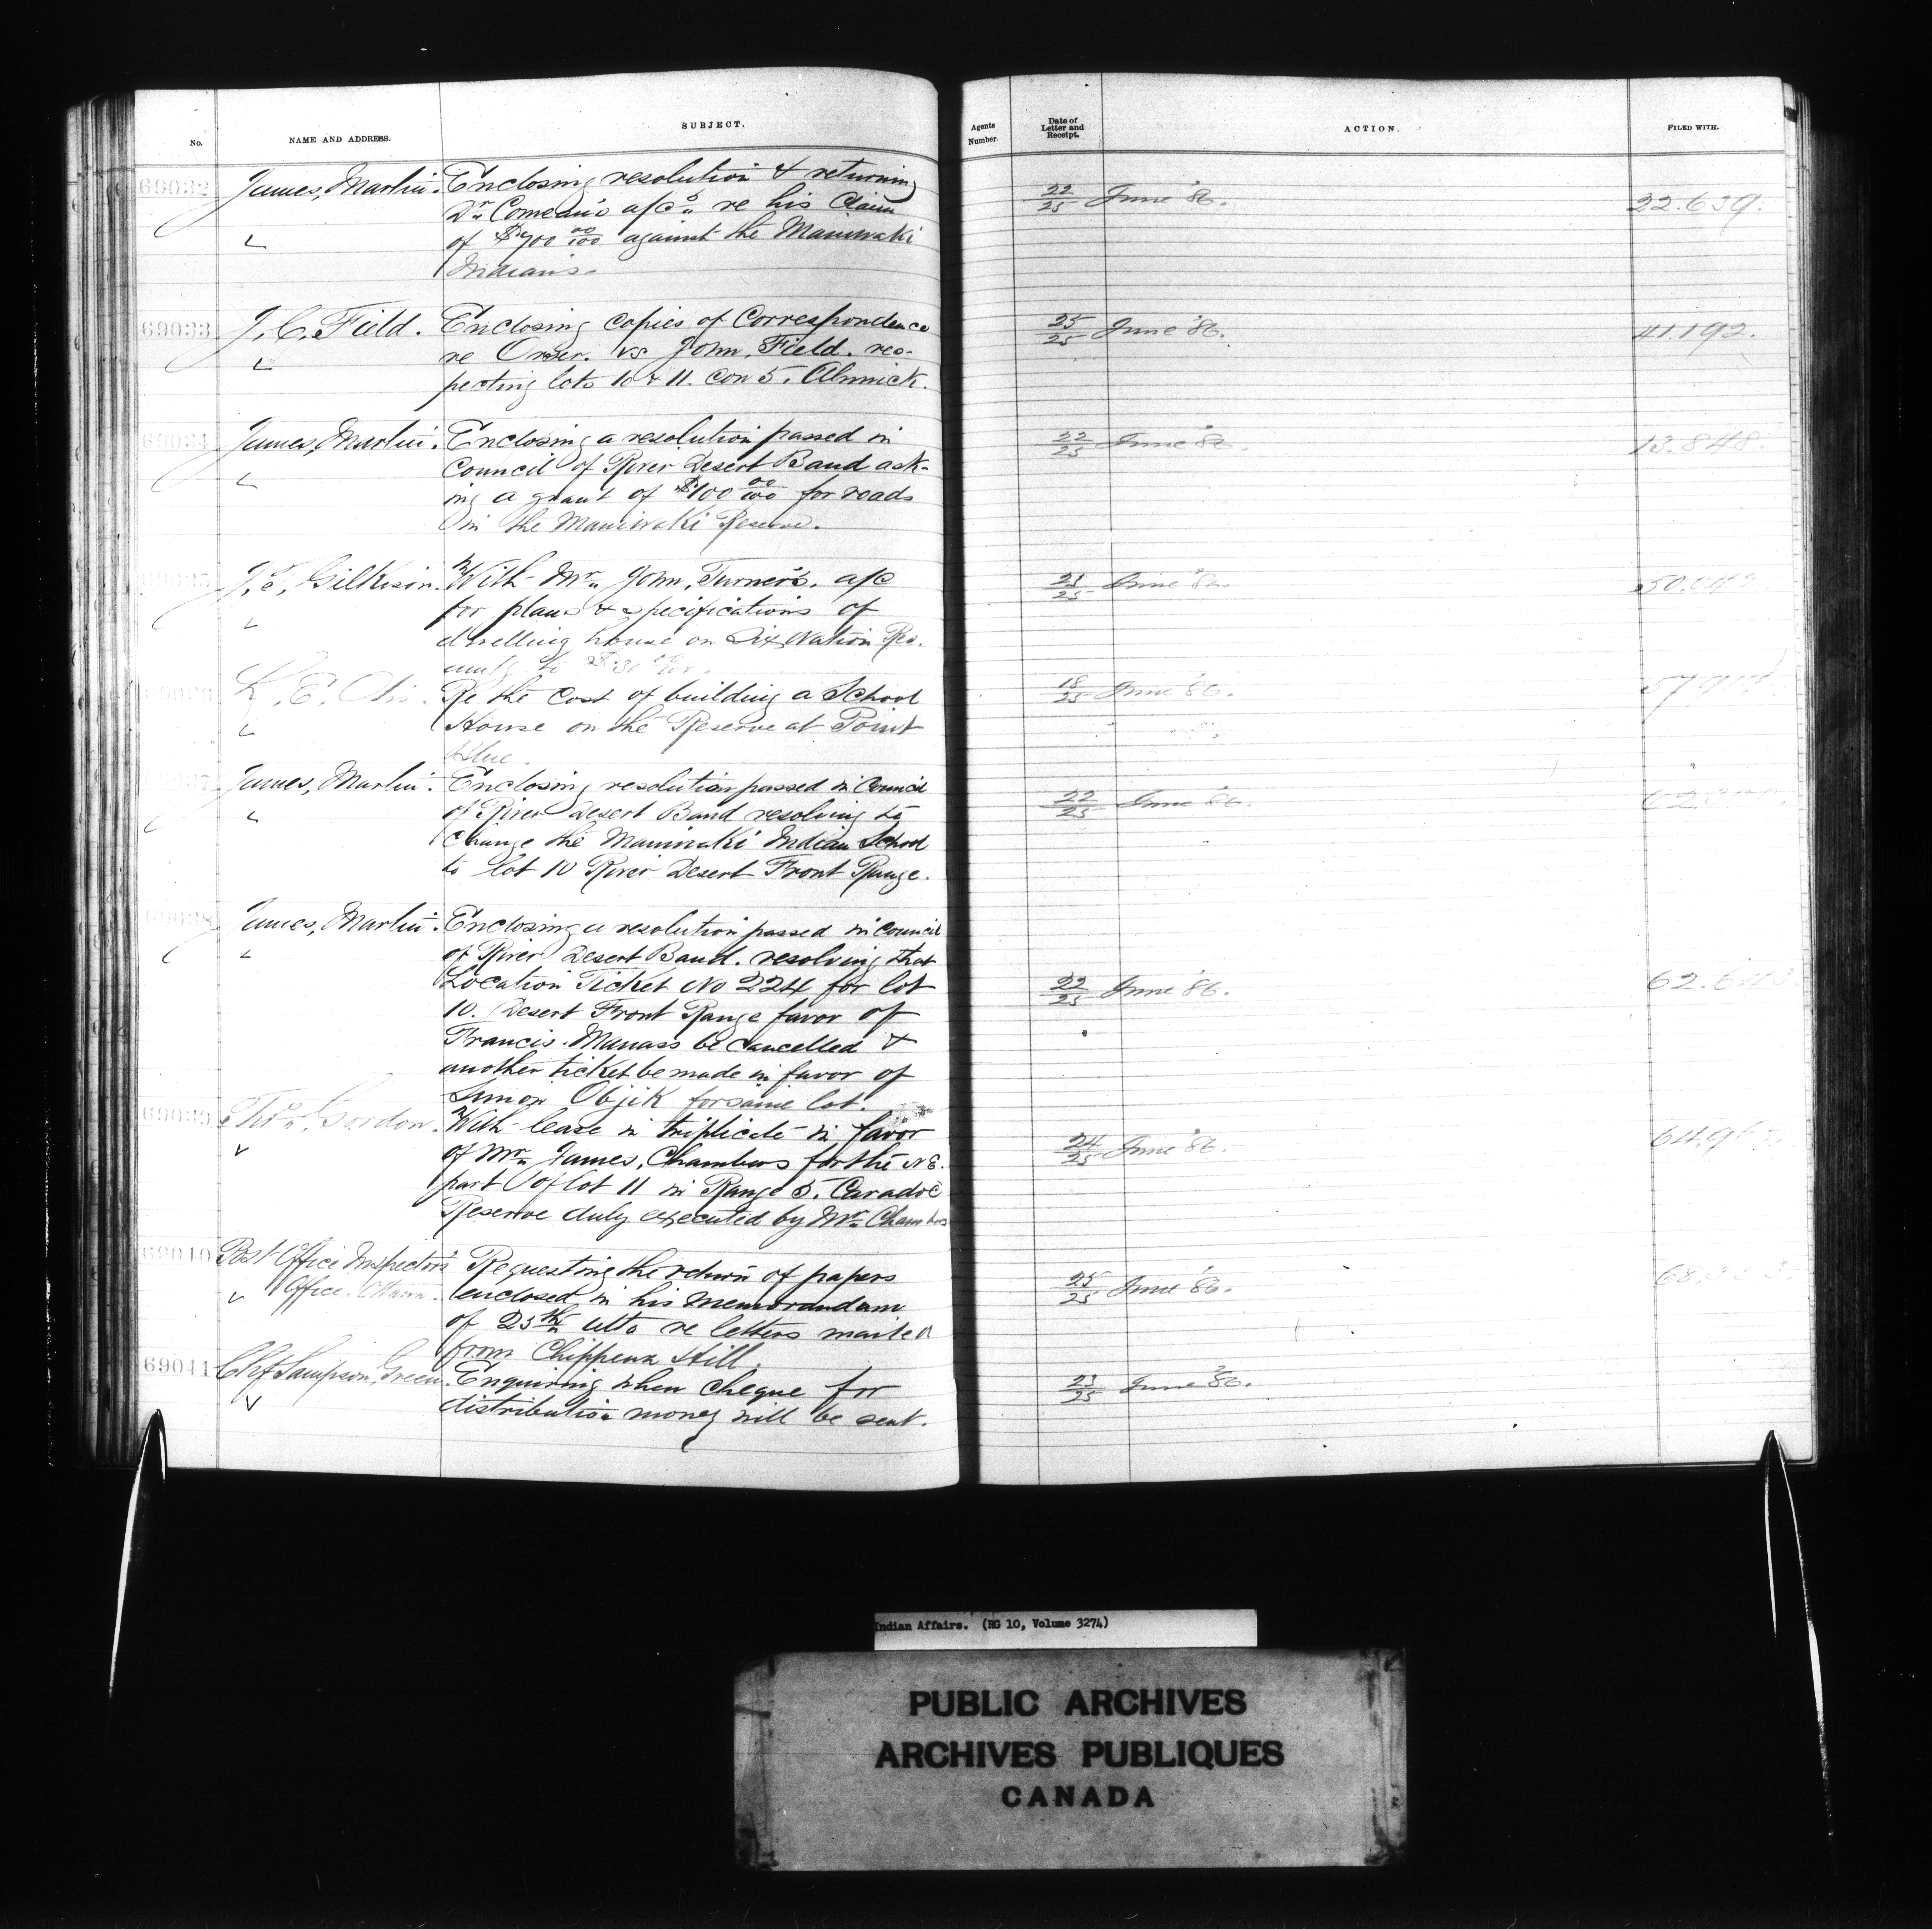 No.
NAME AND ADDRESS.
SUBJECT.
Agents Number.
Date of Letter and Receipt.
ACTION.
FILED WITH.
69032
James, Martin.
Enclosing resolution & returning
Dr. Comeau's a/cs re his Claim
of $700 00/100 against the Maniwaki
Indians.
22/25 June '86.
22.639.
69033
J. C. Field.
Enclosing copies of Correspondence
re Orser. vs John, Field. res-
pecting lots 10 & 11. Con 5. Alnwick.
25/25 June '86.
41.192.
69034
James, Martin.
Enclosing a resolution passed in
Council of River Desert Band ask-
ing a grant of $100 00/100 for roads
in the Maniwaki Reserve.
22/25 June '86.
13.848.
J. T. Gilkison.
With Mr. John, Turner's. a/c
for plans & specifications of
dwelling house on Six Nation Res.
/25 June '86.
L. E. Otis.
Re the cost of building a School
House on the Reserve at Point
Blue.
18/25 June '86.
James, Martin.
Enclosing resolution passed in Council
of River Desert Band resolving to
change the Maniwaki Indian School
to lot 10 River Desert Front Range.
22/25 June '86.
69038
James, Martin.
Enclosing a resolution passed in Council
of River Desert Band. resolving that
Location Ticket No 224 for lot
10. Desert Front Range favor of
Francis. Manass be cancelled &
another ticket be made in favor of
Simon Objik for same lot.
22/25 June '86.
69039
Thos. Gordon.
With lease in triplicate in favor
of Mr. James, Chambers for the N.E.
part of lot 11 in Range 5. Caradoc
Reserve duly executed by Mr. Chambers
24/25 June '86.
69040
Post Office Inspector's
Office. Ottawa.
Requesting the return of papers
enclosed in his memorandum
of 25th ulto re letters mailed
from Chippewa Hill.
25/25 June '86.
69041
Chf Sampson, Green.
Enquiring when cheque for
distribution money will be sent.
23/25 June '86.
Indian Affairs. (RG 10, Volume 3274)
PUBLIC ARCHIVES
ARCHIVES PUBLIQUES
CANADA